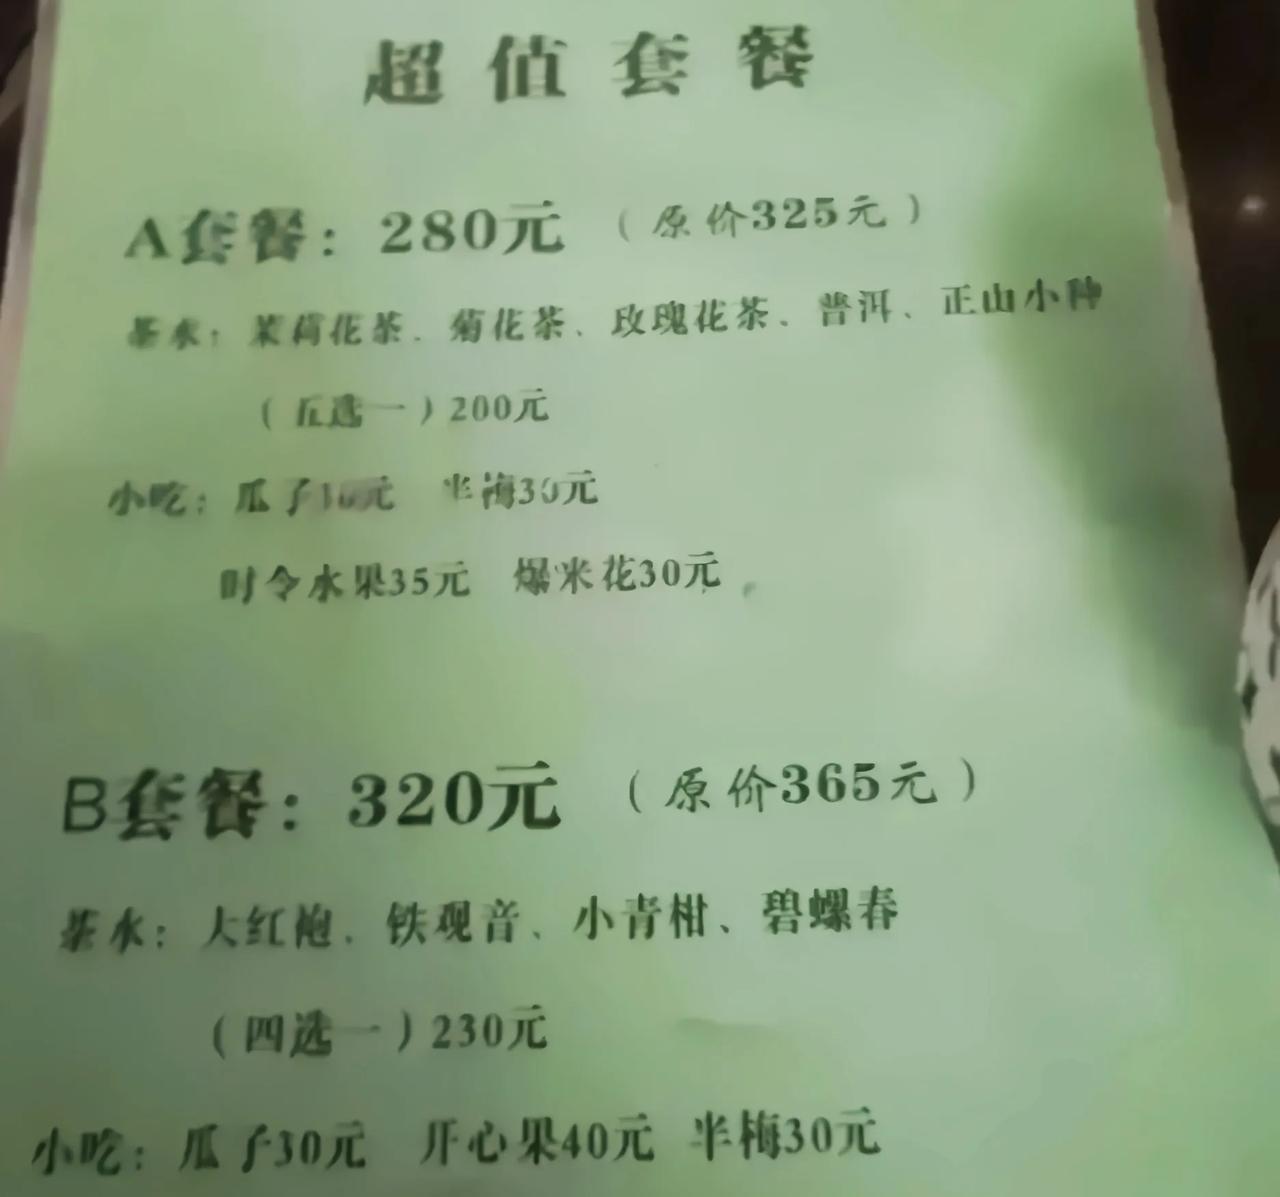 超值套餐
A套餐：280元（原价325元）
茶水：茉莉花茶、菊花茶、玫瑰花茶、普洱、正山小种
（五选一）200元
小吃：瓜子 元 半梅30元
时令水果35元 爆米花30元
B套餐：320元（原价365元）
茶水：大红袍、铁观音、小青柑、碧螺春
（四选一）230元
小吃：瓜子30元 开心果40元 半梅30元